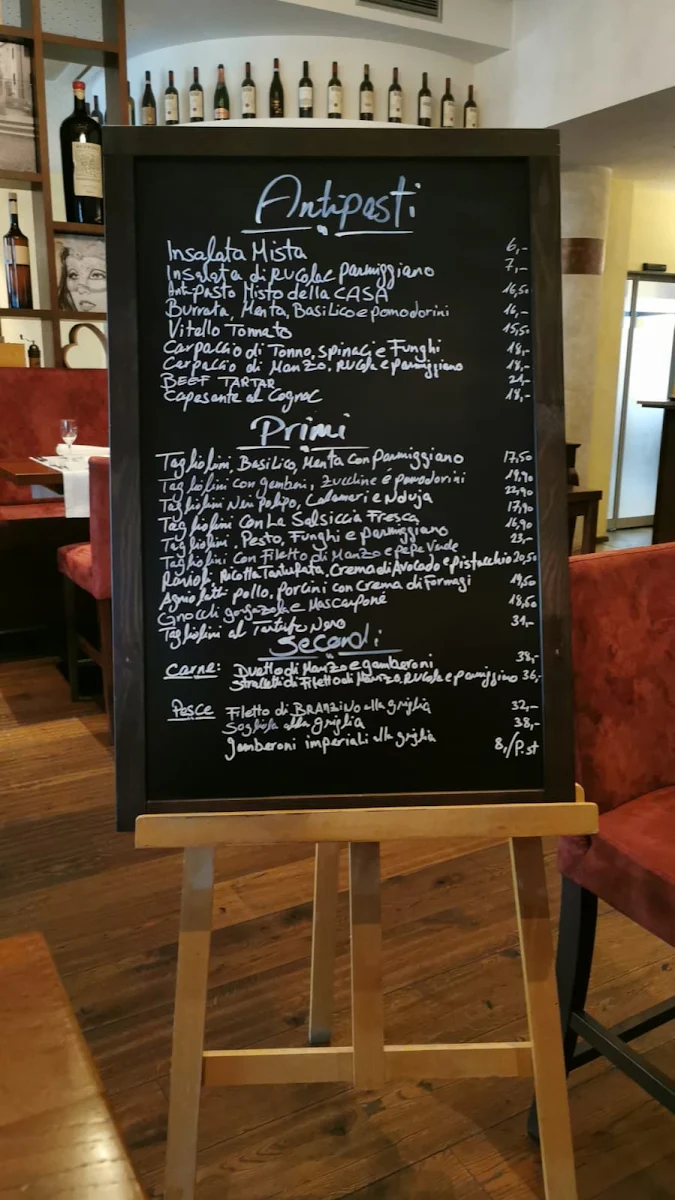 Antipasti
Insalata Mista 6,-
Insalata di RUCOLA e parmiggiano 7,-
Antipasto Misto della CASA 16,50
Burrata, Menta, Basilico e pomodorini 16,-
Vitello Tonnato 15,50
Carpaccio di Tonno, spinaci e Funghi 18,-
Carpaccio di Manzo, RUCOLA e parmiggiano 18,-
BEEF TARTAR 21,-
Capesante al Cognac 18,-
Primi
Tagliolini, Basilico, Menta con Parmiggiano 17,50
Tagliolini con gamberi, zucchine é pomodorini 19,90
Tagliolini Neri Polipo, Calamari e Nduja 22,90
Tagliolini con La Salsiccia Fresca 17,90
Tagliolini, Pesto, Funghi e Parmiggiano 16,90
Tagliolini con Filetto di Manzo e pepe Verde 23,-
Ravioli Ricotta Tartufata, Crema di Avocado e pistacchio 20,50
Agnolotti pollo, porcini con Crema di Formagi 19,50
Gnocchi gorgonzola e Mascarponé 18,60
Tagliolini al Tartufo Nero 31,-
Secondi
Carne: Duetto di Manzo e gamberoni 38,-
Straccetti di Filetto di Manzo, RUCOLA e parmiggiano 36,-
Pesce Filetto di BRANZINO alla griglia 32,-
Sogliola alla griglia 38,-
gamberoni imperiali alla griglia 8,/P.st